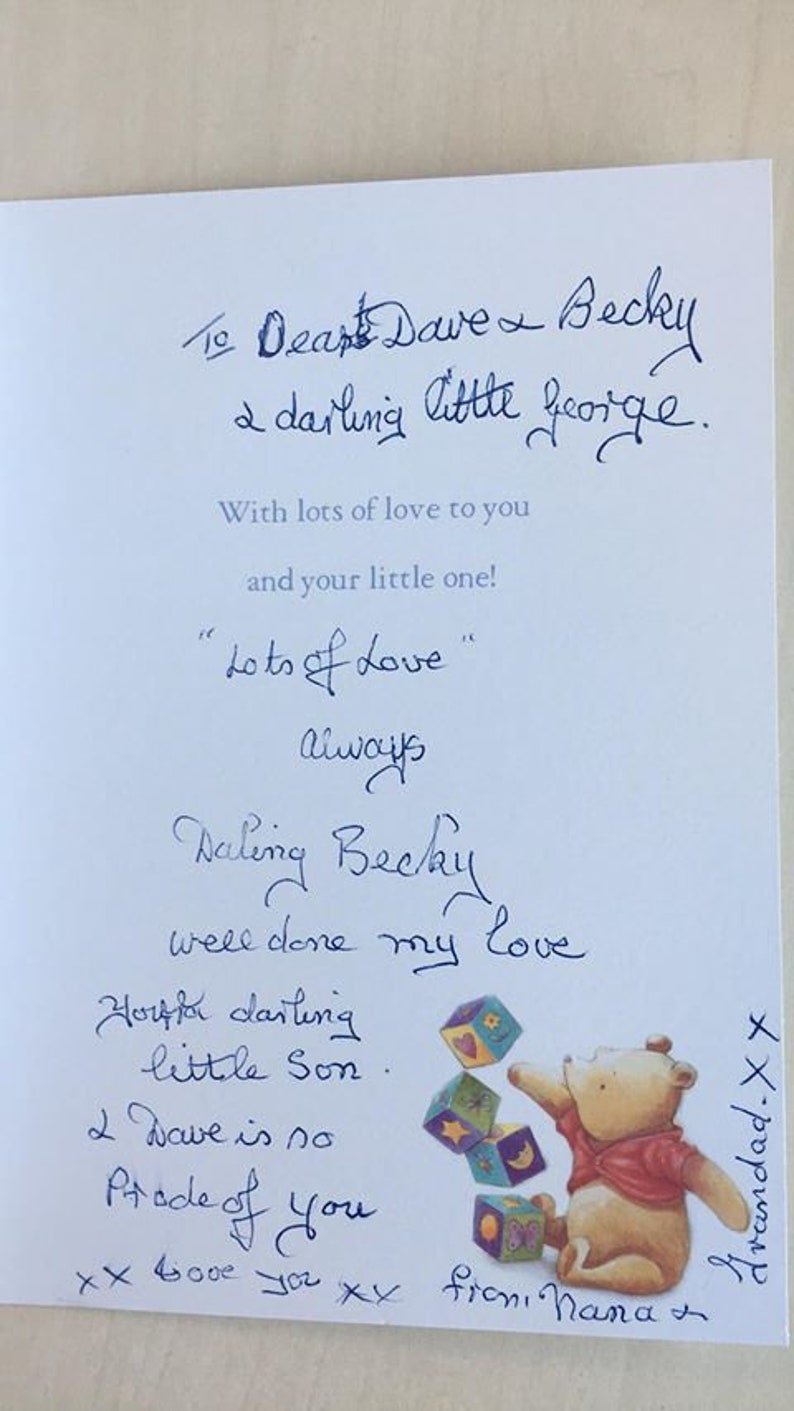 To Dear Dave & Becky
& darling little George.
With lots of love to you
and your little one!
"Lots of Love"
always
Daling Becky
well done my love
darling
little Son.
& Dave is so
Prode of you
xx Love you xx
from Nana &
Grandad-XX